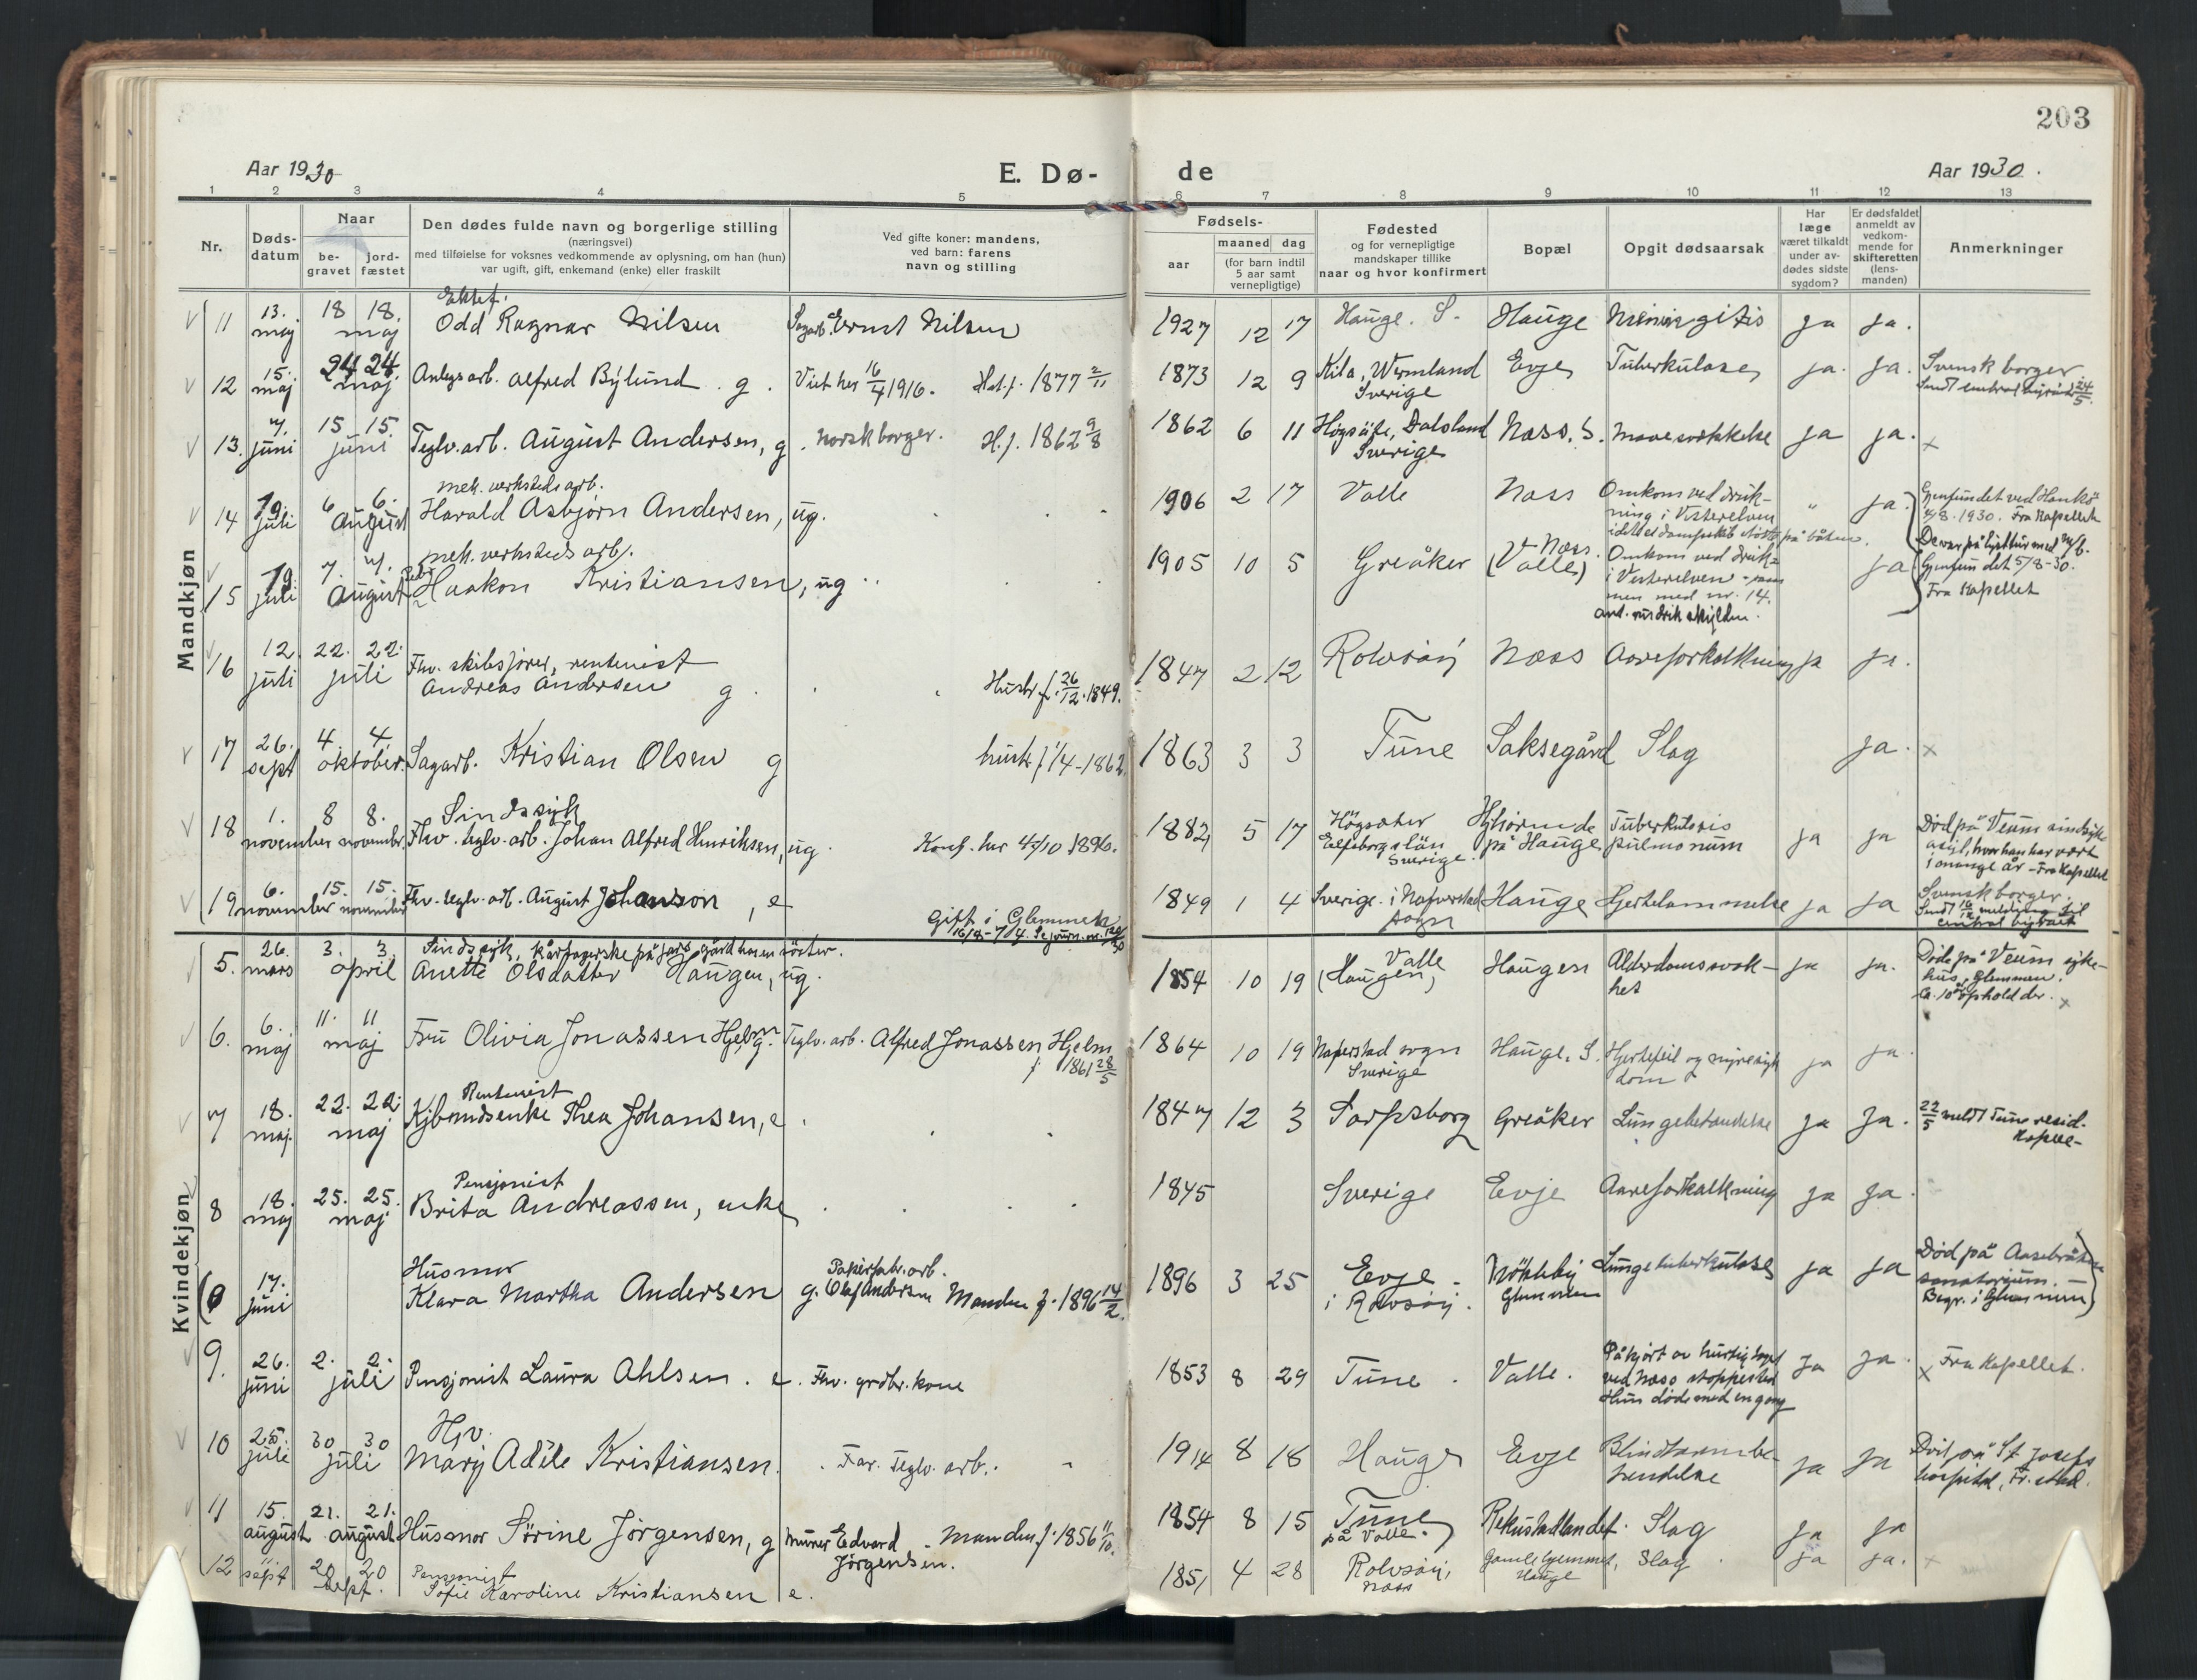 203
Aar 1930
E. Dø-
de
Aar 1930.
1 2 3 4 5 6 7 8 9 10 11 12 13
Nr.
Døds-
datum
Naar
be-
gravet
jord-
fæstet
Den dødes fulde navn og borgerlige stilling
(næringsvei)
med tilføielse for voksnes vedkommende av oplysning, om han (hun)
var ugift, gift, enkemand (enke) eller fraskilt
Ved gifte koner: mandens,
ved barn: farens
navn og stilling
Fødsels-
aar
maaned dag
(for barn indtil
5 aar samt
vernepligtige)
Fødested
og for vernepligtige
mandskaper tillike
naar og hvor konfirmert
Bopæl
Opgit dødsaarsak
Har
læge
været tilkaldt
under av-
dødes sidste
sygdom?
Er dødsfaldet
anmeldt av
vedkom-
mende for
skifteretten
(lens-
manden)
Anmerkninger
Mandkjøn
11 13. maj 18 18. maj
Ektef.
Odd Ragnar Nilsen
Sagarb. Ernst Nilsen
1927 12 17 Hauge. S. Hauge Meningitis ja ja.
12 15. maj 24 24. maj
Anlegsarb. Alfred Bylund. g. Viet her 16/4 1916. Hst. f. 1877 2/11
1873 12 9 Kila, Wermland
Sverige
Evje Tuberkulose ja. ja. Svensk borger.
13. 7. juni 15 15. juni
Teglv. arb. August Andersen, g. Norsk borger. H. f. 1862 9/8
1862 6 11 Högsäte, Dalsland
Sverige
Næss. S. Mavesvækkelse ja ja. x
14 19. juli 6 6. August
mek. verksteds arb.
Harald Asbjørn Andersen, ug.
1906 2 17 Valle Næss Omkom ved druk-
ning i Vesterelven
" ja. Gjenfundet ved Hankø
4/8. 1930. Fra Kapellet
15 19. juli 7. 7. August
mek. verksteds arb.
Haakon Kristiansen, ug.
1905 10 5 Greåker Næss.
(Valle)
Omkom ved druk-
i Vesterelven - sam
men med nr. 14.
ja. Gjenfundet 5/8-30.
Fra Kapellet
16 12. juli 22. 22. juli
Fhv. skibsfører, rentenist
Andreas Andersen g. Hustr. f. 26/12. 1849.
1847 2 12 Rolvsøy Næss Aareforkalkning ja ja.
17 26. sept 4. 4. oktober.
Sagarb. Kristian Olsen g hustr. f. 1/4-1862.
1863 3 3 Tune Saksegård Slag ja. x
18 1. november 8 8. novembr.
Sindssyk
Fhv. teglv. arb. Johan Alfred Henriksen, ug. Konf. her 4/10 1896.
1882 5 17 Högsäter
Elfsborgs län
Sverige.
Hjhørende
på Hauge
Tuberkulosis
pulmonum
ja ja Död på Veum sindssyke
asyl, hvor han har vært
i mange år - Fra Kapellet
19 6. november 15. 15. november
Fhv. teglv. arb. August Johanson, e
Gift i Glemmen
1849 1 4 Sverige. i Naverstad
sogn
Hauge Hjertelammelse ja ja Svensk borger.
Kvindekjøn
5. 26. mars 3. 3. april
Anette Olsdatter Haugen, ug.
1854 10 19 Valle
(Haugen)
Haugen Alderdomssvak-
het
ja ja. Døde på Veum syke-
hus, Glemmen.
Ca. 10 års ophold der. x
6. 6. maj 11. 11 maj
Fru Olivia Jonassen Hjelm g. Teglv. arb. Alfred Jonassen Hjelm
f. 1861 28/5
1864 10 19 Naverstad sogn
Sverige
Hauge. S. Hjertefeil og nyresyk
dom
ja ja.
7 18. maj. 22. 22. maj
Rentenist
Kjbmdsenke Thea Johansen, e.
1847 12 3 Sarpsborg Greåker Lungebetændelse ja ja. 22/5 meldt Tune resid.
kapell-
8 18. maj 25. 25. maj
Pensjonist
Brita Andreassen, enke
1845 Sverige Evje Aareforkalkning ja ja.
(0 17. juni
Husmor
Klara Martha Andersen
Papirfabr. arb.
g. Olaf Andersen Manden f. 1896 14/2.
1896 3 25 Evje -
i Rolvsøy.
Rökleby
Glemmen
Lungetuberkulose ja ja Død på Aasebråten
sanatorium. -
Begr. i Glemmen)
9. 26. juni 2. 2. juli
Pensjonist Laura Ahlsen. e. Fhv. grdbr. kone
1853 8 29 Tune. Valle. Påkjørt av hurtigtoget
ved Næss stoppested
Hun døde med en gang
ja ja. x Fra Kapellet.
10 25. juli 30 30 juli
Hjv.
Mary Adéle Kristiansen. Far. Teglv. arb.
1914 8 18 Hauge Evje Blindtarmbe-
tendelse
ja ja Død på St. Josefs
hospital, Fr. stad.
11 15. august 21. 21. august
Husmor Sørine Jørgensen, g murer Edvard
Jørgensen. Manden f. 1856 11/10.
1854 8 15 Tune
på Valle.
Rekustadlandet. Slag ja ja
12 11 sept 20 20 sept.
Pensjonist
Sofie Karoline Kristiansen e.
1851 4 28 Rolvsøy,
Næss
Gamlehjemmet,
Hauge
Slag. ja ja. x